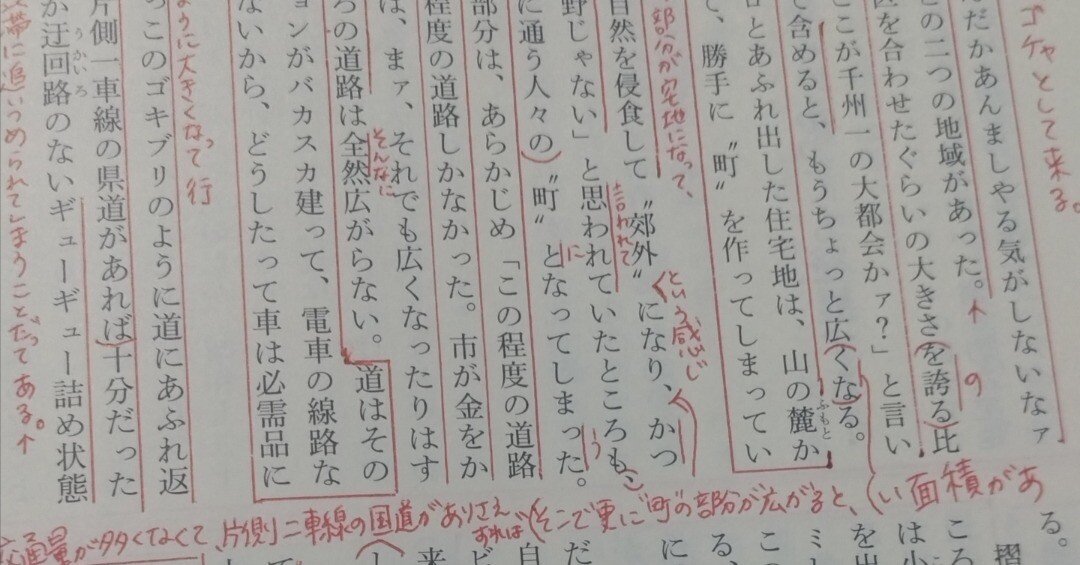 ゴチャとして来る。
だかあんましやる気がしないなァ
の二つの地域があった。
の
区を合わせたぐらいの大きさを誇る比
ここが千州一の大都会かァ？」と言い
て含めると、もうちょっと広くなる。
とあふれ出した住宅地は、山の麓か
ふもと
て、勝手に〝町〟を作ってしまってい
部分が宅地になって、
という感じ
自然を侵食して〝郊外〟になり、かつ
言われて
野じゃない」と思われていたところも
に
う
に通う人々の〝町〟となってしまった。
部分は、あらかじめ「この程度の道路
程度の道路しかなかった。市が金をか
は、まァ、それでも広くなったりはす
そんなに
ろの道路は全然広がらない。道はその
ョンがバカスカ建って、電車の線路な
ないから、どうしたって車は必需品に
ように大きくなって行
っこのゴキブリのように道にあふれ返
片側一車線の県道があれば十分だった
うかいろ
か迂回路のないギューギュー詰め状態
帯に追いつめられてしまうことだってある。
通量が多くてなくて、片側二車線の国道がありさえすれば
そこで更に町の部分が広がると、
い面積があ
る。
摺
ころ
は小
を出
ミし
この
る、
に
だ
自
ビ
来